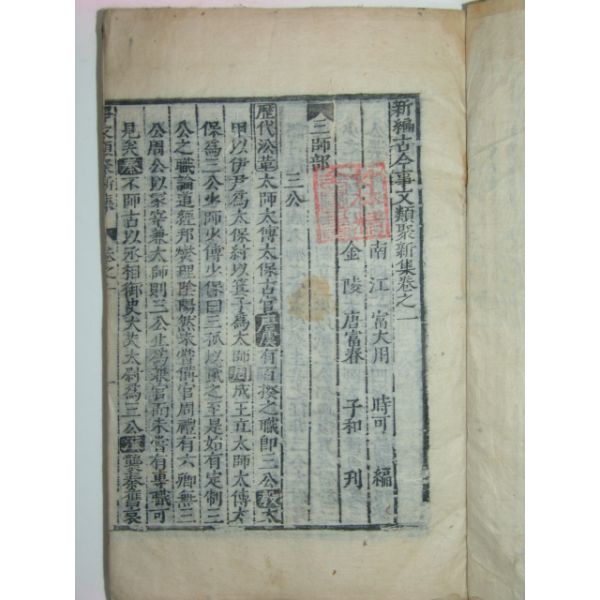 新編古今事文類聚新集卷之一
南江 富大用 時可 編
金陵 唐富春 子和 刊
三師部
三公
歷代沿革太師太傅太保古官唐虞有百揆之職即三公殷太
甲以伊尹爲太保紂以箕子爲太師周成王立太師太傅太
保爲三公少師少傅少保曰三孤以貳之至是如有定制三
公之職論道經邦燮理陰陽然未嘗備官周禮有六卿無三
公周公以冢宰兼太師則三公止爲兼官而未嘗有專職可
見矣秦不師古以丞相御史大夫太尉爲三公漢襲秦舊哀
事文類聚新集 卷之一